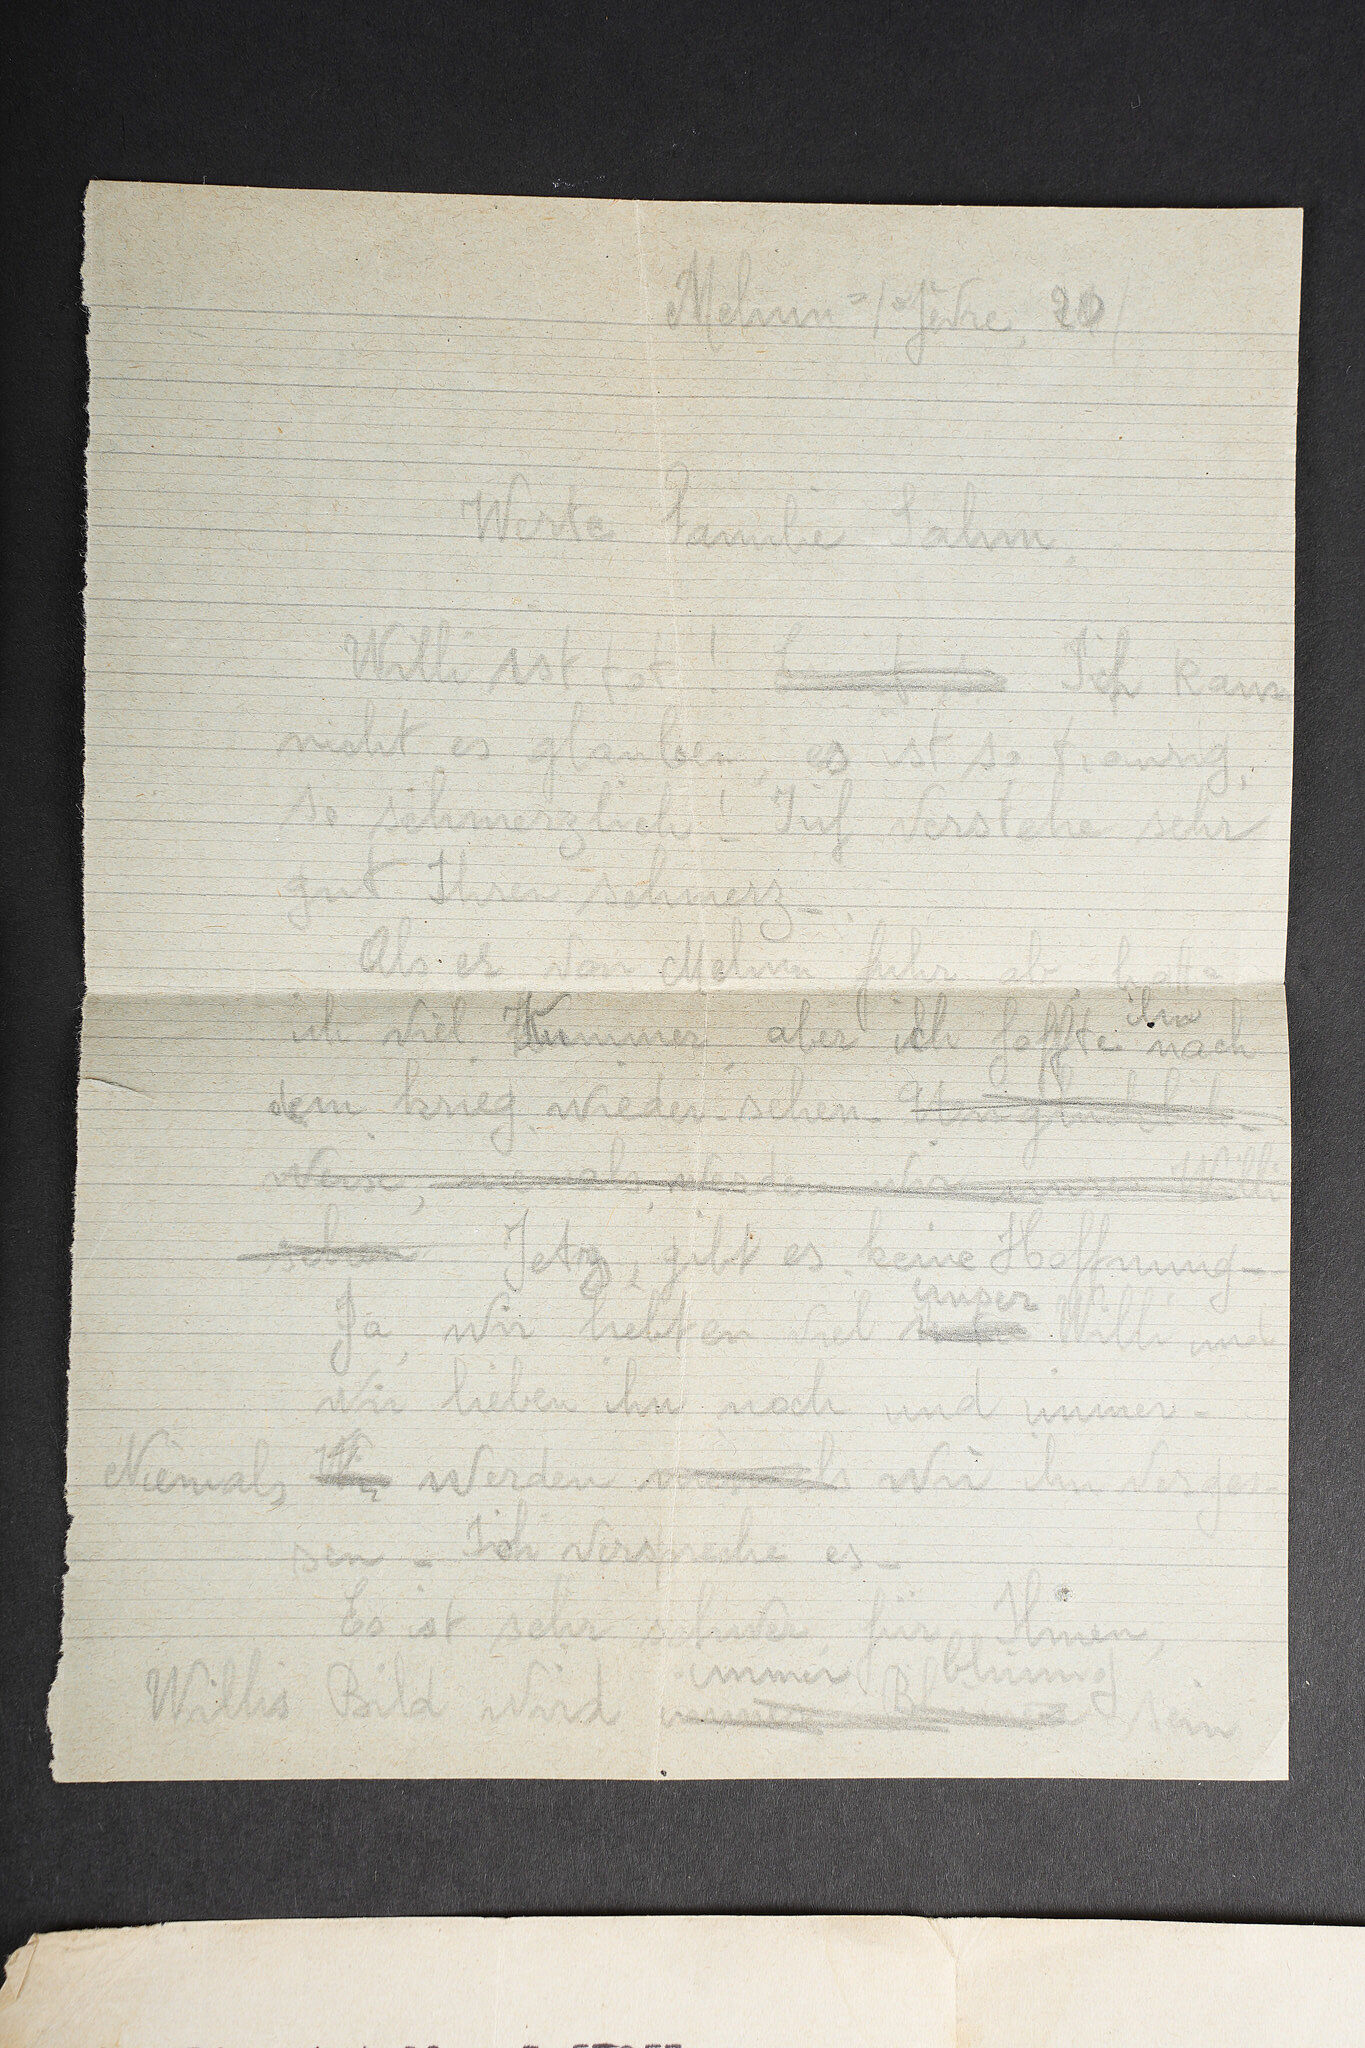 Melun 1 Févre 20
Werte Familie Sahm,
Willi ist tot! Ich kann
nicht es glauben, es ist so traurig,
so schmerzlich! Ich verstehe sehr
gut Ihren schmerz_.
Als er von Melun fuhr ab, hatte
ich viel Kummer, aber ich hoffte ihn nach
dem krieg wieder sehen Unglücklich-
weise, niemals werden wir unser Willi
sehen Jetz, gibt es keine Hoffnung_
Ja, wir liebten viel unser Willi und
wir lieben ihn noch und immer_
Niemals Wir werden niemals wir ihn verges-
sen _ Ich verspreche es_
Es ist sehr schwer für Ihnen,
immer blumig
Willis Bild wird immer sein